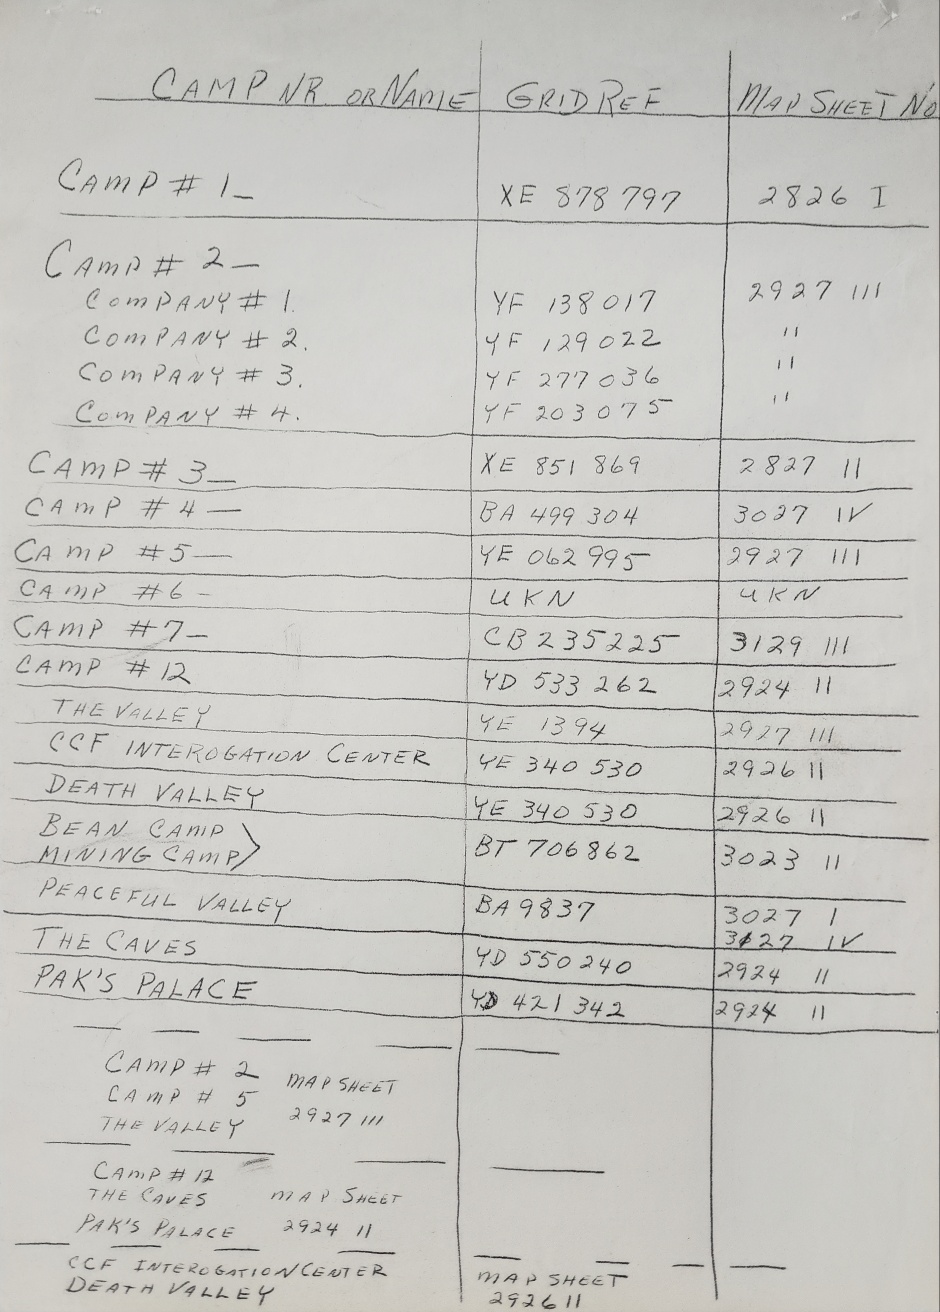 CAMP NR OR NAME GRID REF MAP SHEET NO
CAMP # 1- XE 878 797 2826 I
CAMP # 2-
COMPANY # 1. YF 138 017 2927 III
COMPANY # 2. YF 129 022 "
COMPANY # 3. YF 277 036 "
COMPANY # 4. YF 203 075 "
CAMP # 3- XE 851 869 2827 II
CAMP # 4- BA 499 304 3027 IV
CAMP # 5- YE 062 995 2927 III
CAMP # 6- UKN UKN
CAMP # 7- CB 235225 3129 III
CAMP # 12 YD 533 262 2924 II
THE VALLEY YE 1394 2927 III
CCF INTEROGATION CENTER YE 340 530 2926 II
DEATH VALLEY YE 340 530 2926 II
BEAN CAMP
MINING CAMP BT 706862 3023 II
PEACEFUL VALLEY BA 9837 3027 I
3127 IV
THE CAVES YD 550 240 2924 II
PAK'S PALACE YD 421 342 2924 II
CAMP # 2 MAP SHEET
CAMP # 5 2927 III
THE VALLEY
CAMP # 12
THE CAVES MAP SHEET
PAK'S PALACE 2924 II
CCF INTEROGATION CENTER MAP SHEET
DEATH VALLEY 2926 II